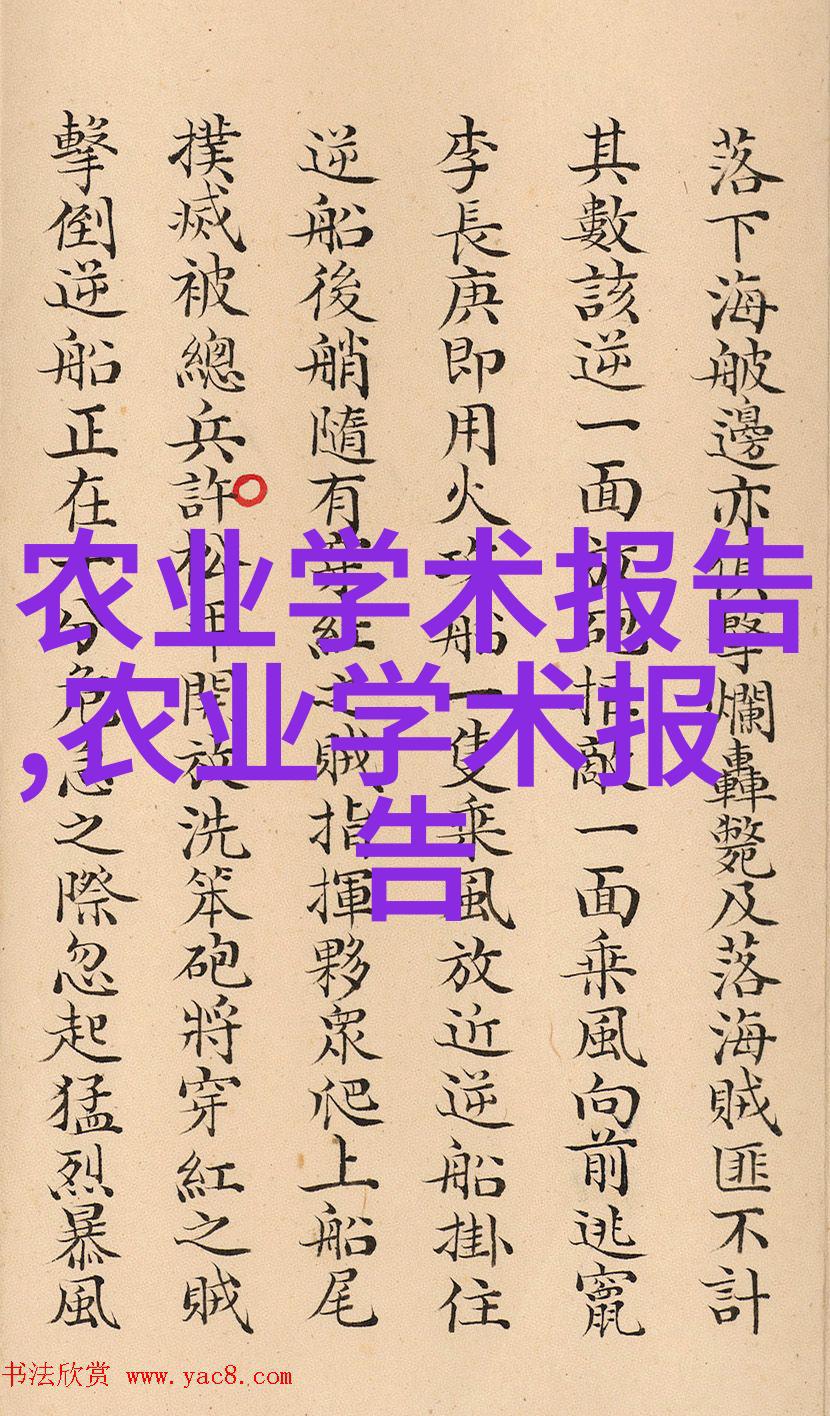 落下海皮邊亦俱擊爛轟斃及落海賊匪不計
其數該逆一面放砲拒敵一面乗風向前逃竄
李長庚即用火攻船一隻乗風放近逆船掛住
逆船後艄隨有穿紅之賊指揮夥眾爬上船尾
撲滅被總兵許松年開放洗笨砲將穿紅之賊
擊倒逆船正在十分危急之際忽起猛烈暴風
农业学术报告
,农业学术报
告
书法欣赏 www.yac8.com